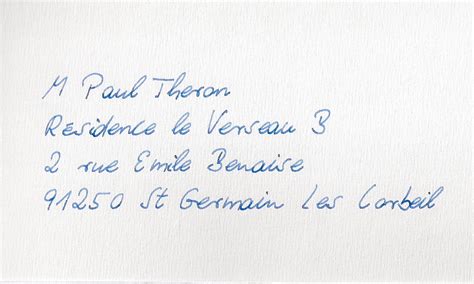 M Paul Theron
Résidence le Verseau B
2 rue Emile Benaise
91250 St Germain Les Corbeil